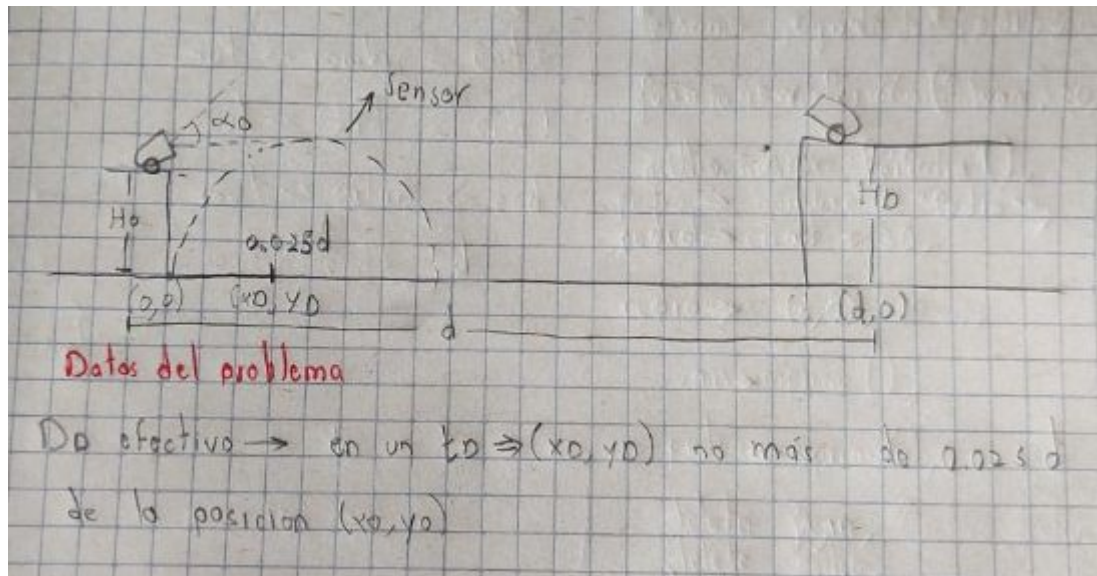 Sensor
αo
Ho
HD
0.025d
(0,0)
(xD, yD
(d,0)
d
Datos del problema
Do efectivo → en un tD ⇒ (xD, yD) no más de 0.025 d
de la posición (xo, yo)